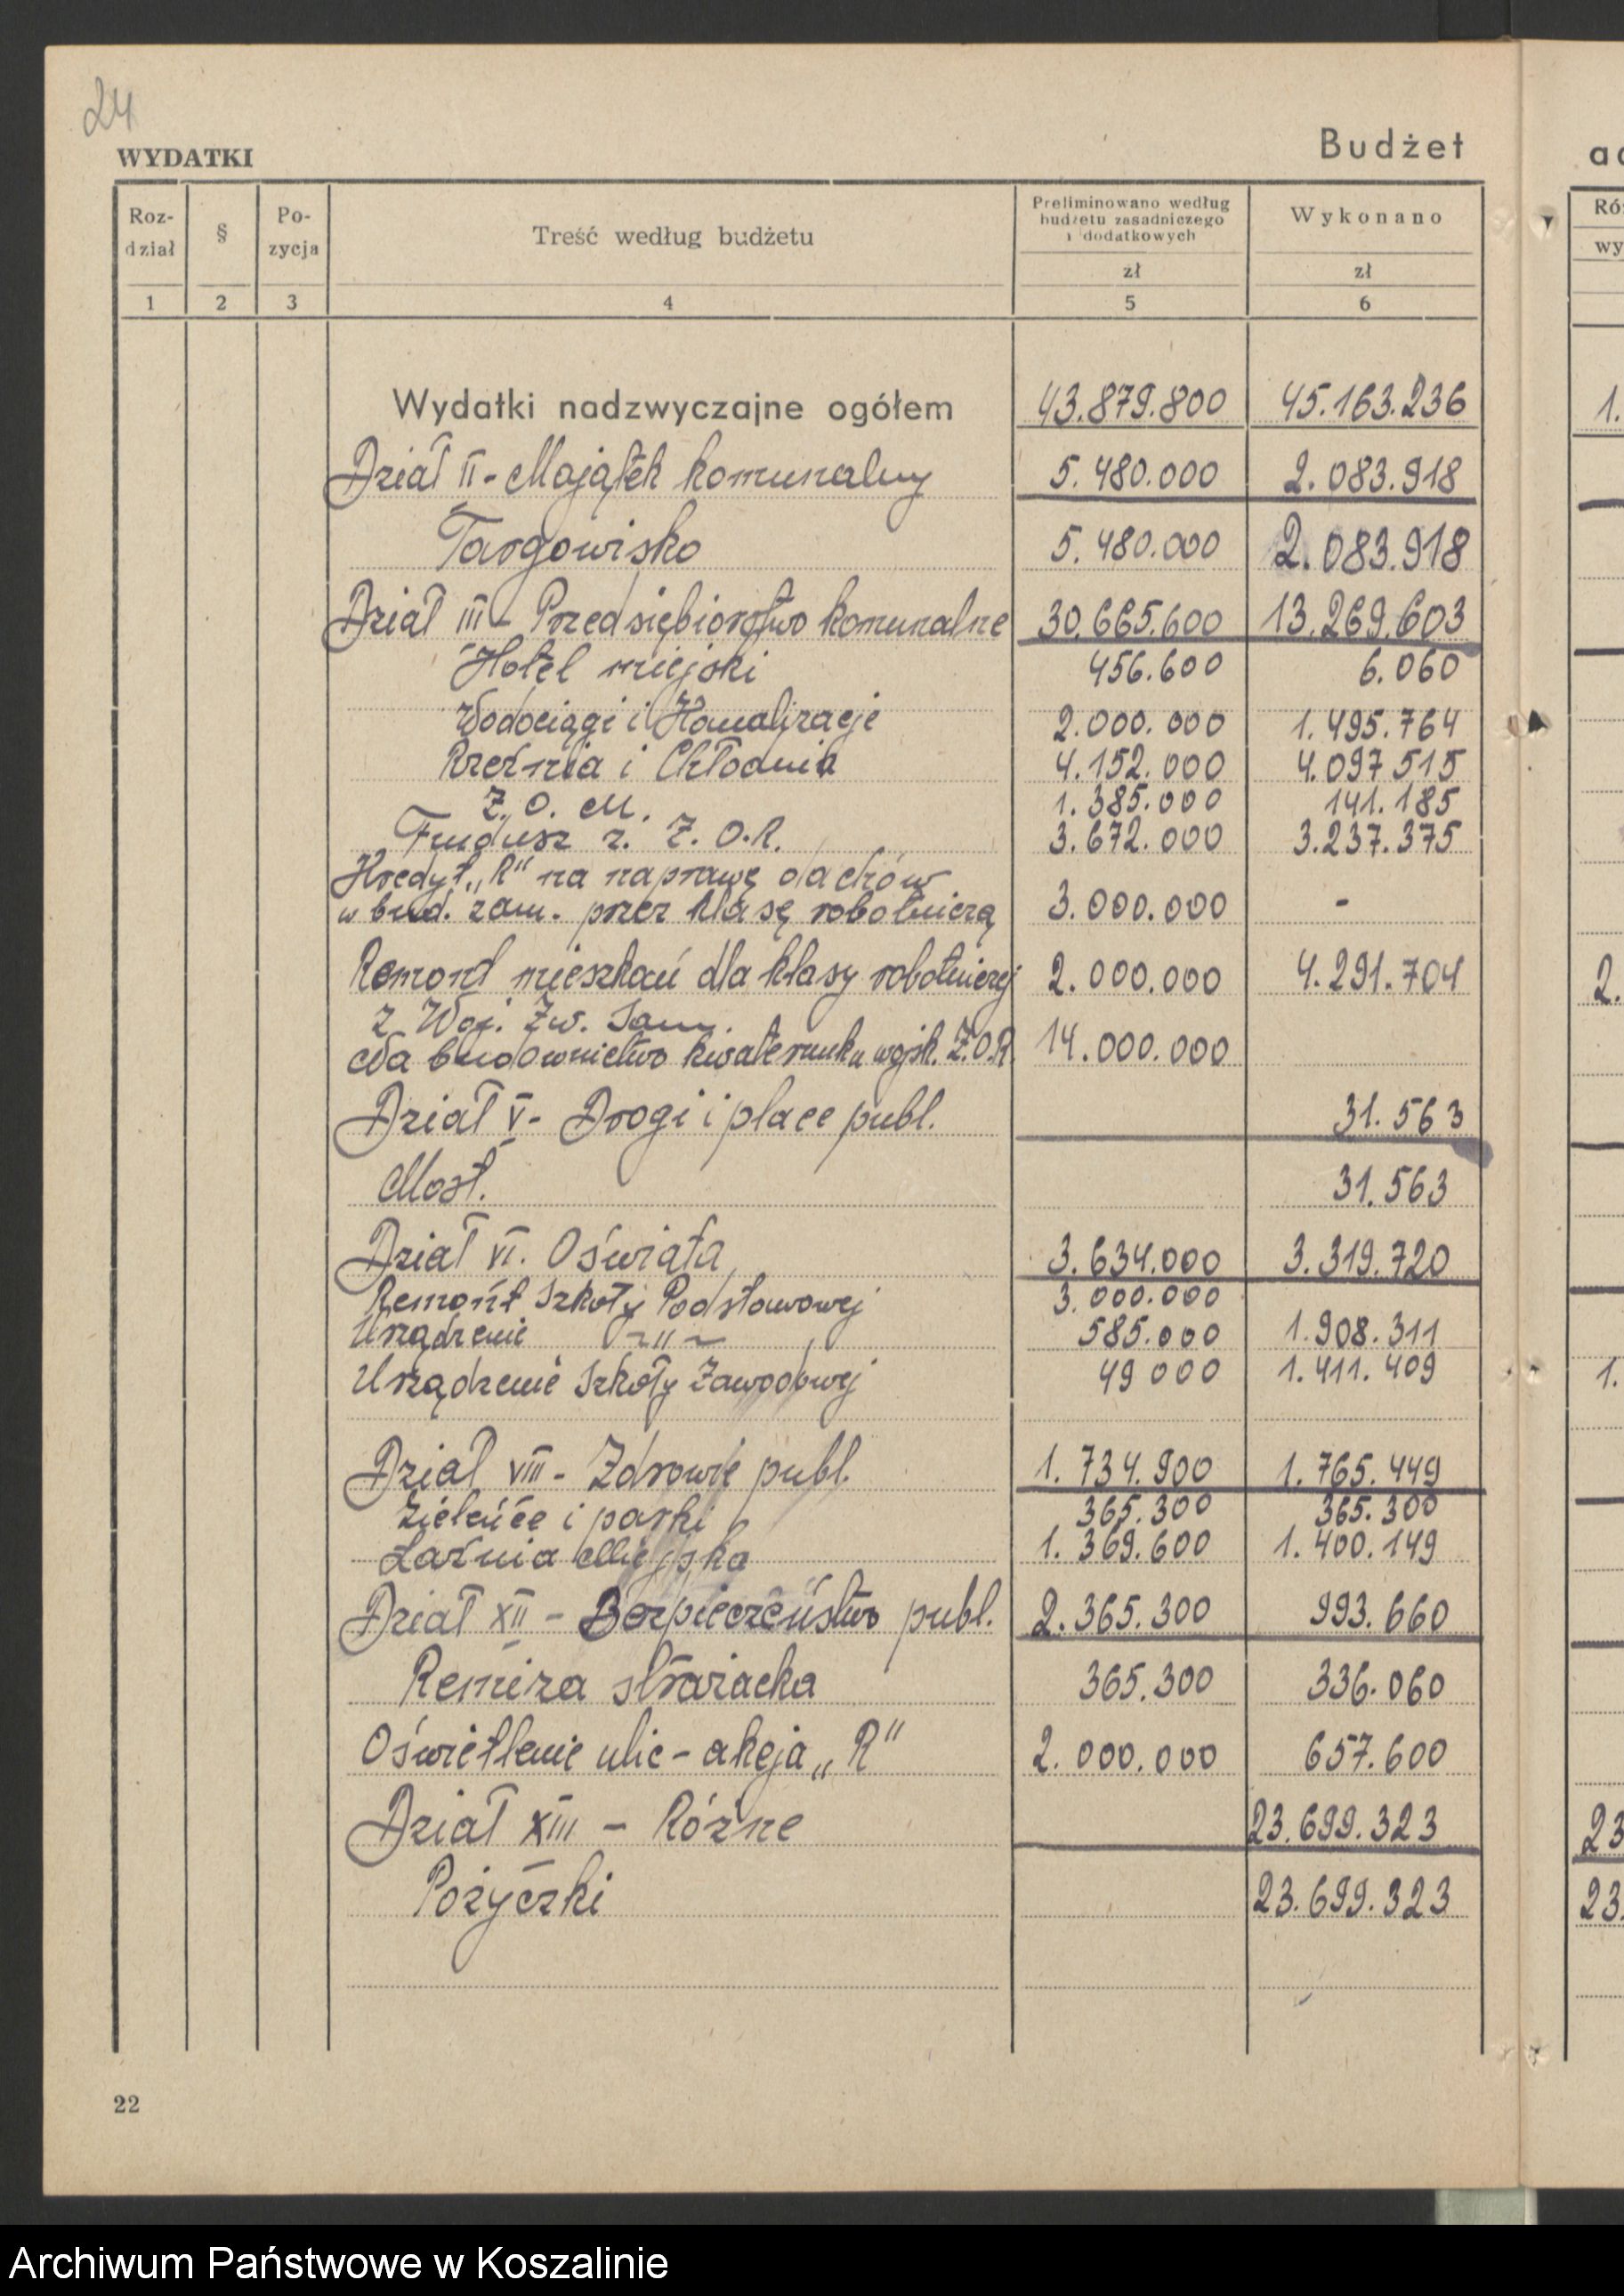 24
WYDATKI
Budżet
Roz-
dział
§
Po-
zycja
Treść według budżetu
Preliminowano według
budżetu zasadniczego
i dodatkowych
Wykonano
zł
zł
1 2 3 4 5 6
Wydatki nadzwyczajne ogółem 43.879.800 45.163.236
Dział II - Majątek komunalny 5.480.000 2.083.918
Targowisko 5.480.000 2.083.918
Dział III - Przedsiębiorstwo komunalne 30.665.600 13.269.603
Hotel miejski 456.600 6.060
Wodociągi i Kanalizacje 2.000.000 1.495.764
Rzeźnia i Chłodnia 4.152.000 4.097515
Z. O. M. 1.385.000 141.185
Fundusz z. Z. O.R. 3.672.000 3.237.375
Kredyt „R" na naprawę dachów
w bud. zam. przez klasę robotniczą 3.000.000 -
Remond mieszkań dla klasy robotniczej 2.000.000 4.291.704
z Woj. Zw. Sam.
Na budownictwo kwaterunku wojsk. Z.O.R. 14.000.000
Dział V - Drogi i place publ. 31.563
Most. 31.563
Dział VI. Oświata 3.634.000 3.319.720
Remont Szkoły Podstawowej 3.000.000
Urządzenie ~ " ~ 585.000 1.908.311
Urządzenie Szkoły Zawodowej 49 000 1.411.409
Dział VIII - Zdrowie publ. 1.734.900 1.765.449
Zieleńce i parki 365.300 365.300
Łaźnia Miejska 1.369.600 1.400.149
Dział XII - Bezpieczeństwo publ. 2.365.300 993.660
Remiza strażacka 365.300 336.060
Oświetlenie ulic - akcja „R" 2.000.000 657.600
Dział XIII - Różne 23.699.323
Pożyczki 23.699.323
22
Archiwum Państwowe w Koszalinie